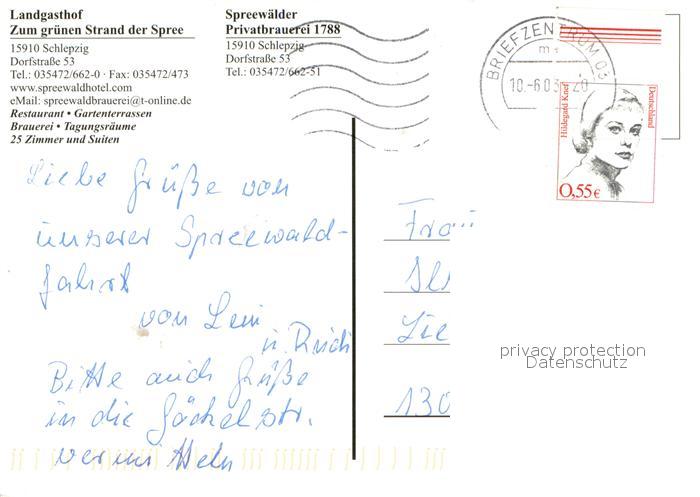 Landgasthof
Zum grünen Strand der Spree
15910 Schlepzig
Dorfstraße 53
Tel.: 035472/662-0 · Fax: 035472/473
www.spreewaldhotel.com
eMail: spreewaldbrauerei@t-online.de
Restaurant • Gartenterrassen
Brauerei • Tagungsräume
25 Zimmer und Suiten
Spreewälder
Privatbrauerei 1788
15910 Schlepzig
Dorfstraße 53
Tel.: 035472/662-51
BRIEFZENTRUM 03
10.-6.03
20
Hildegard Knef
Deutschland
0,55€
Liebe Grüße von
unserer Spreewald-
fahrt
von
u.
Bitte auch Grüße
in die Gäckelstr.
vermitteln
Frau
130
privacy protection
Datenschutz